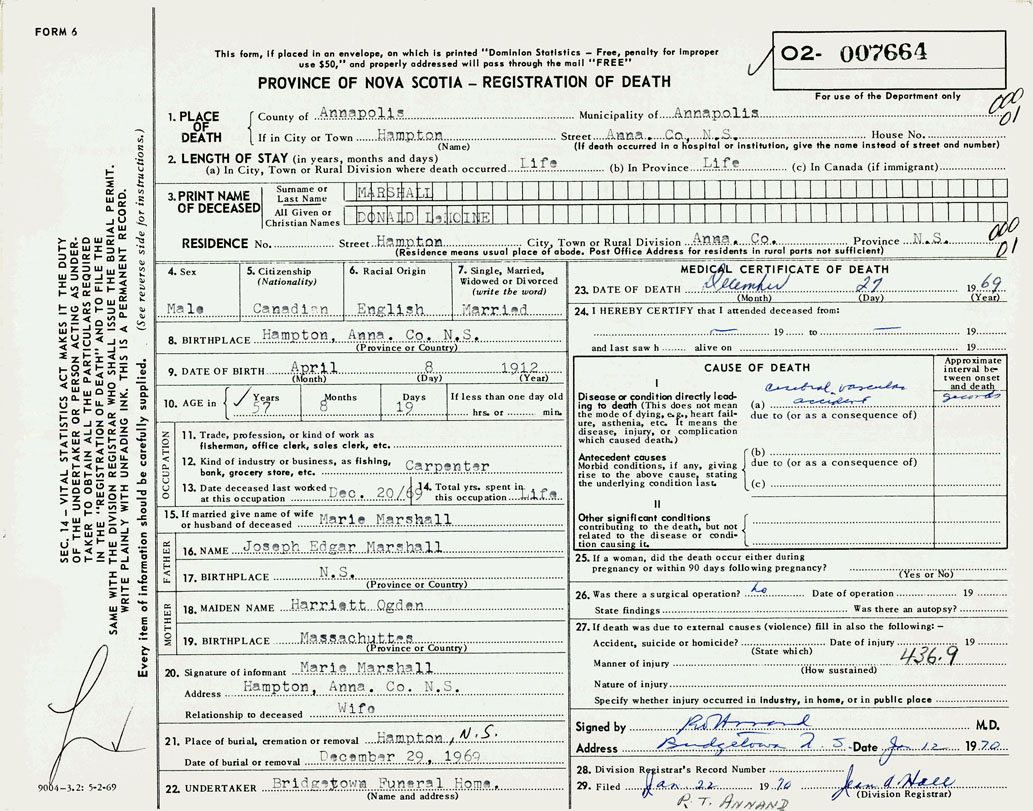 FORM 6
This form, if placed in an envelope, on which is printed "Dominion Statistics – Free, penalty for improper
use $50," and properly addressed will pass through the mail "FREE"
PROVINCE OF NOVA SCOTIA – REGISTRATION OF DEATH
02- 007664
For use of the Department only
000
01
1. PLACE OF DEATH
County of Annapolis Municipality of Annapolis
If in City or Town Hampton Street Anna. Co, N.S. House No.
(Name) (If death occurred in a hospital or institution, give the name instead of street and number)
2. LENGTH OF STAY (in years, months and days)
(a) In City, Town or Rural Division where death occurred Life (b) In Province Life (c) In Canada (if immigrant)
3. PRINT NAME OF DECEASED
Surname or Last Name MARSHALL
All Given or Christian Names DONALD LeMOINE
000
01
RESIDENCE No. Street Hampton City, Town or Rural Division Anna. Co. Province N.S.
(Residence means usual place of abode. Post Office Address for residents in rural parts not sufficient)
4. Sex
Male
5. Citizenship
(Nationality)
Canadian
6. Racial Origin
English
7. Single, Married,
Widowed or Divorced
(write the word)
Married
8. BIRTHPLACE Hampton, Anna. Co. N.S.
(Province or Country)
9. DATE OF BIRTH April 8 1912
(Month) (Day) (Year)
10. AGE in Years Months Days If less than one day old
57 8 19 hrs. or min.
OCCUPATION
11. Trade, profession, or kind of work as
fisherman, office clerk, sales clerk, etc.
12. Kind of industry or business, as fishing,
bank, grocery store, etc. Carpenter
13. Date deceased last worked
at this occupation Dec. 20/69
14. Total yrs. spent in
this occupation Life
15. If married give name of wife
or husband of deceased Marie Marshall
FATHER
16. NAME Joseph Edgar Marshall
17. BIRTHPLACE N.S.
(Province or Country)
MOTHER
18. MAIDEN NAME Harriett Ogden
19. BIRTHPLACE Massachuttes
(Province or Country)
20. Signature of informant Marie Marshall
Address Hampton, Anna. Co. N.S.
Relationship to deceased Wife
21. Place of burial, cremation or removal Hampton, N.S.
Date of burial or removal December 29, 1969
22. UNDERTAKER Bridgetown Funeral Home.
(Name and address)
MEDICAL CERTIFICATE OF DEATH
23. DATE OF DEATH December 27 1969
(Month) (Day) (Year)
24. I HEREBY CERTIFY that I attended deceased from:
— 19 to — 19
and last saw h alive on 19
CAUSE OF DEATH
Approximate
interval be-
tween onset
and death
I
Disease or condition directly lead-
ing to death (This does not mean
the mode of dying, e.g., heart fail-
ure, asthenia, etc. It means the
disease, injury, or complication
which caused death.)
cerebral vascular
(a) accident
due to (or as a consequence of)
Antecedent causes
Morbid conditions, if any, giving
rise to the above cause, stating
the underlying condition last.
(b)
due to (or as a consequence of)
(c)
II
Other significant conditions
contributing to the death, but not
related to the disease or condi-
tion causing it.
25. If a woman, did the death occur either during
pregnancy or within 90 days following pregnancy?
(Yes or No)
26. Was there a surgical operation? no Date of operation 19
State findings Was there an autopsy?
27. If death was due to external causes (violence) fill in also the following: –
Accident, suicide or homicide? Date of injury 19
(State which) 436.9
Manner of injury
(How sustained)
Nature of injury
Specify whether injury occurred in industry, in home, or in public place
Signed by R T Annand M.D.
Address Bridgetown N. S. Date Jan 12 1970
28. Division Registrar's Record Number
29. Filed Jan 22 1970 Jean A. Hall
(Division Registrar)
R.T. ANNAND
SEC. 14 – VITAL STATISTICS ACT MAKES IT THE DUTY
OF THE UNDERTAKER OR PERSON ACTING AS UNDER-
TAKER TO OBTAIN ALL THE PARTICULARS REQUIRED
IN THE "REGISTRATION OF DEATH" AND TO FILE THE
SAME WITH THE DIVISION REGISTRAR WHO SHALL ISSUE THE BURIAL PERMIT.
WRITE PLAINLY WITH UNFADING INK. THIS IS A PERMANENT RECORD.
Every item of information should be carefully supplied. (See reverse side for instructions.)
9004–3.2: 5-2-69